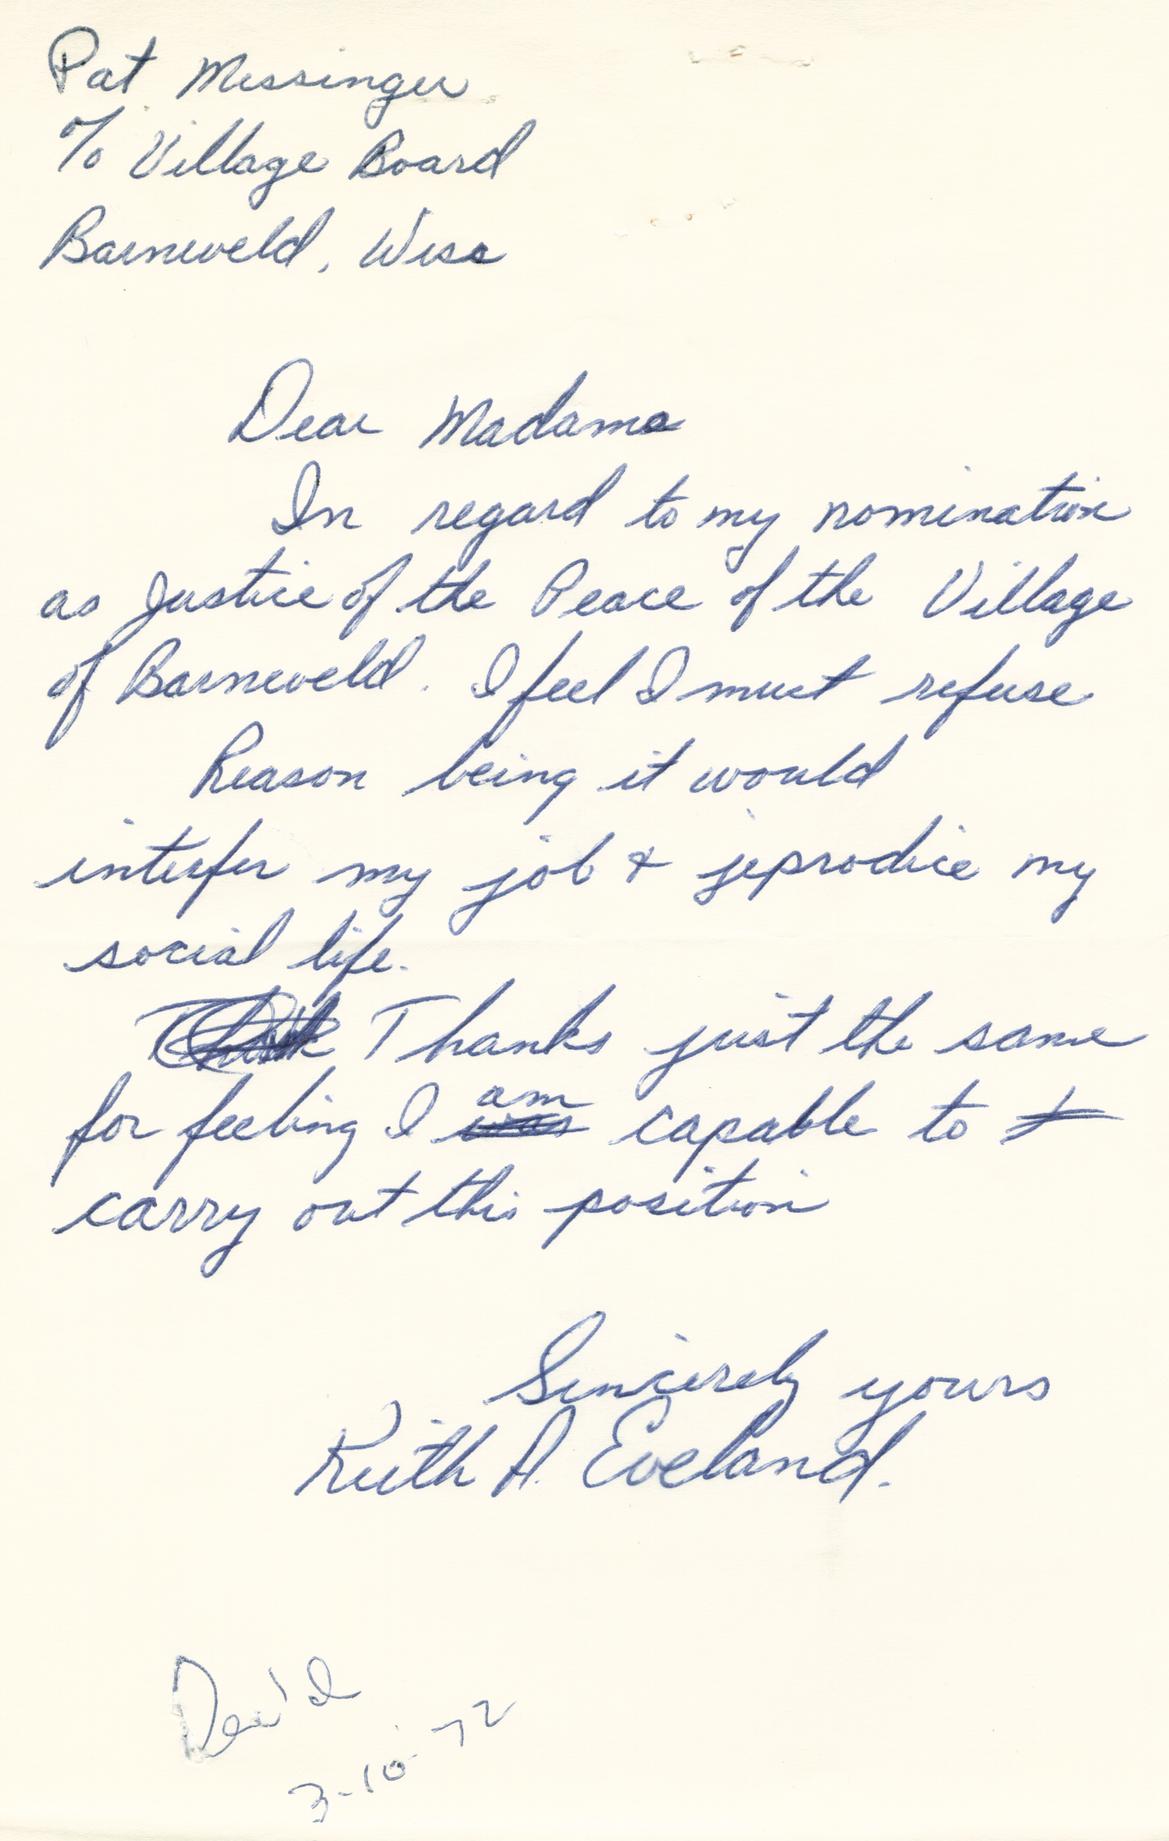 Pat Messinger
c/o Village Board
Barneveld, Wisc
Dear Madame
In regard to my nomination
as Justice of the Peace of the Village
of Barneveld. I feel I must refuse
Reason being it would
interfer my job & jeprodice my
social life.
Thanks just the same
for feeling I was am capable to t
carry out this position
Sincerely yours
Ruth A. Eveland.
Rec'd
3-10-72